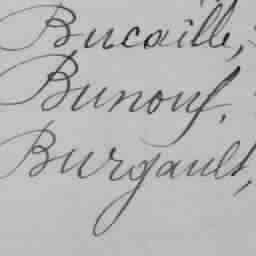 Bucaille,
Bunouf,
Burgault,